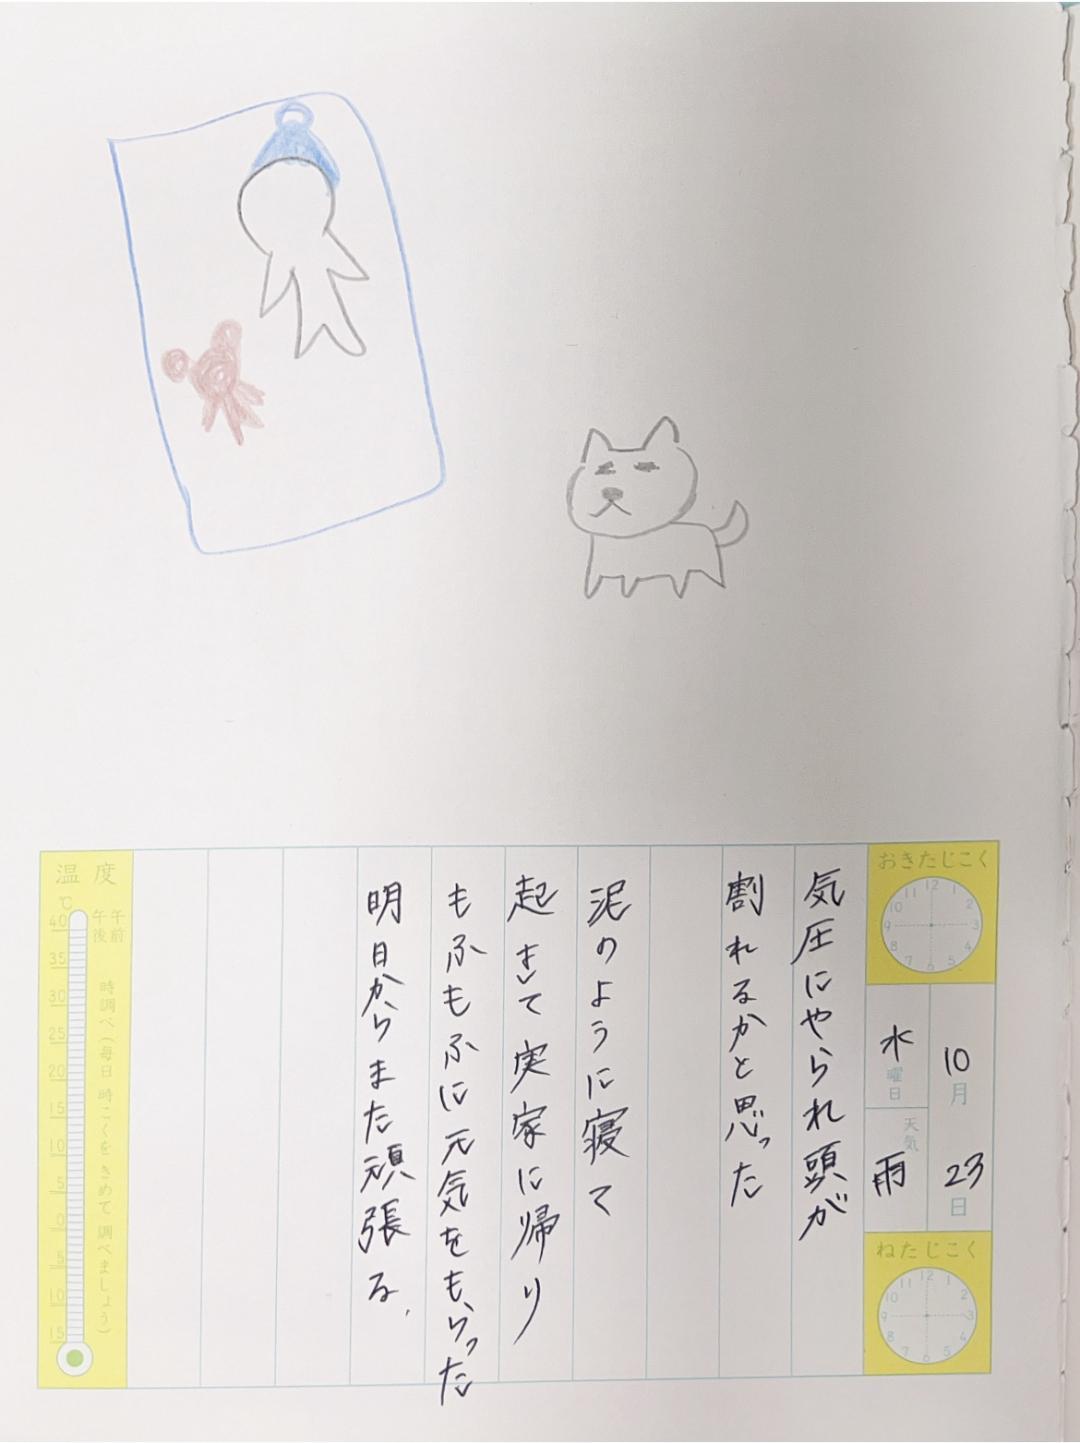 おきたじこく
10月23日
水曜日
天気
雨
ねたじこく
気圧にやられ頭が
割れるかと思った
泥のように寝て
起きて実家に帰り
もふもふに元気をもらった
明日からまた頑張る、
温度
℃
午前
午後
時調べ(毎日 時こくを きめて 調べましょう)
40
35
30
25
20
15
10
5
0
5
10
15
12
1
2
3
4
5
6
7
8
9
10
11
12
1
2
3
4
5
6
7
8
9
10
11